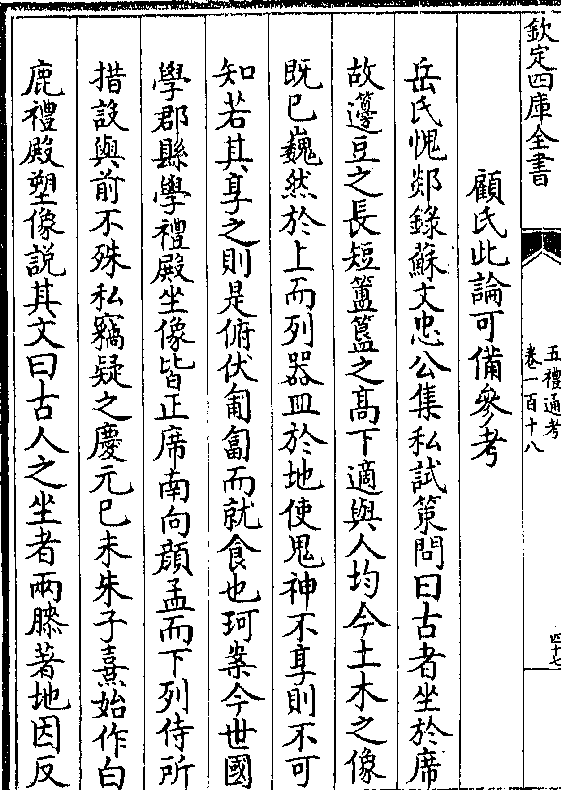 欽定四庫全書
五禮通考
卷一百十八
四十七
顧氏此論可備參考
岳氏愧郯錄蘇文忠公集私試策問曰古者坐於席
故籩豆之長短簠簋之髙下適與人均今土木之像
既已巍然於上而列器皿於地使鬼神不享則不可
知若其享之則是俯伏匍匐而就食也珂案今世國
學郡縣學禮殿坐像皆正席南向顔孟而下列侍所
措設與前不殊私竊疑之慶元己未朱子熹始作白
鹿禮殿塑像説其文曰古人之坐者兩膝著地因反